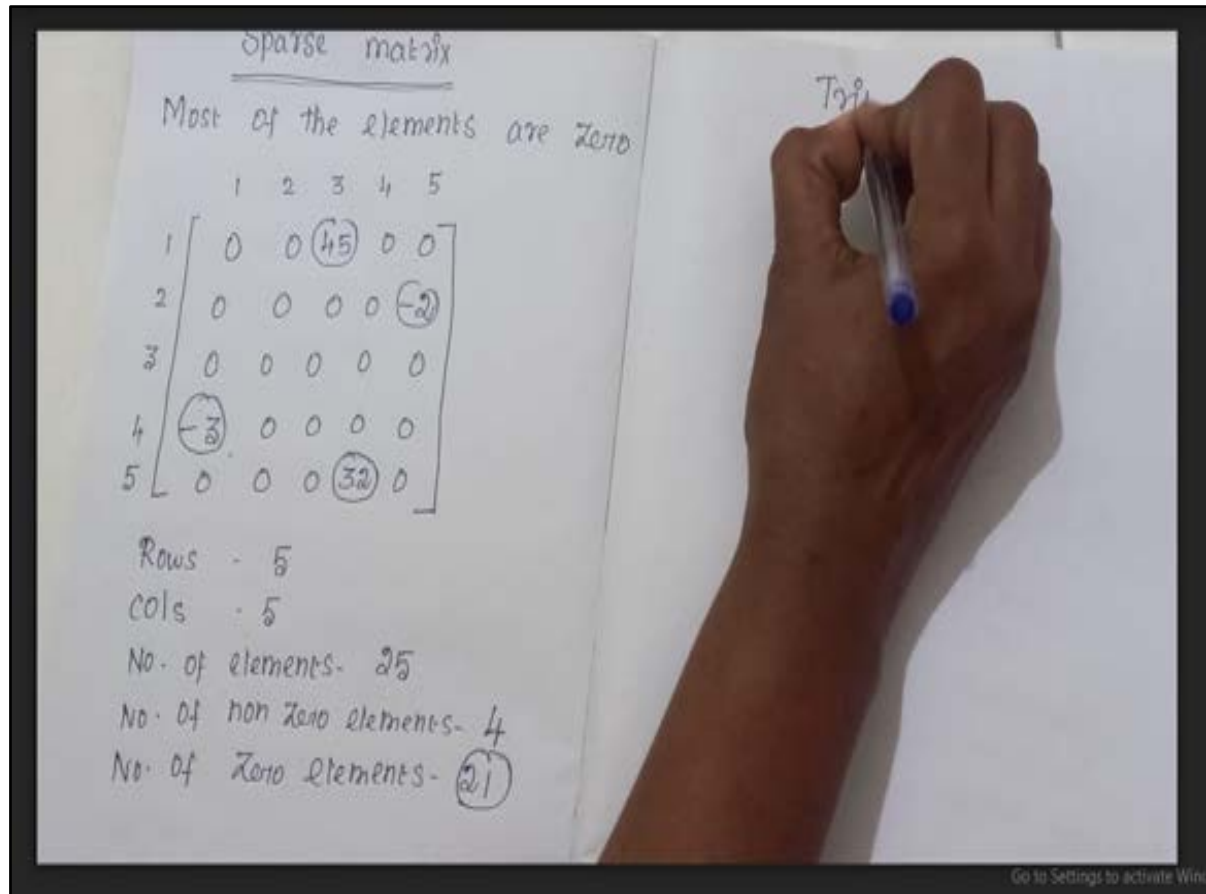 Sparse matrix
Most of the elements are zero
1 2 3 4 5
1 0 0 45 0 0
2 0 0 0 0 -2
3 0 0 0 0 0
4 -3 0 0 0 0
5 0 0 0 32 0
Rows - 5
Cols - 5
No. of elements- 25
No. of non zero elements- 4
No. of zero elements- 21
Tri
Go to Settings to activate Win